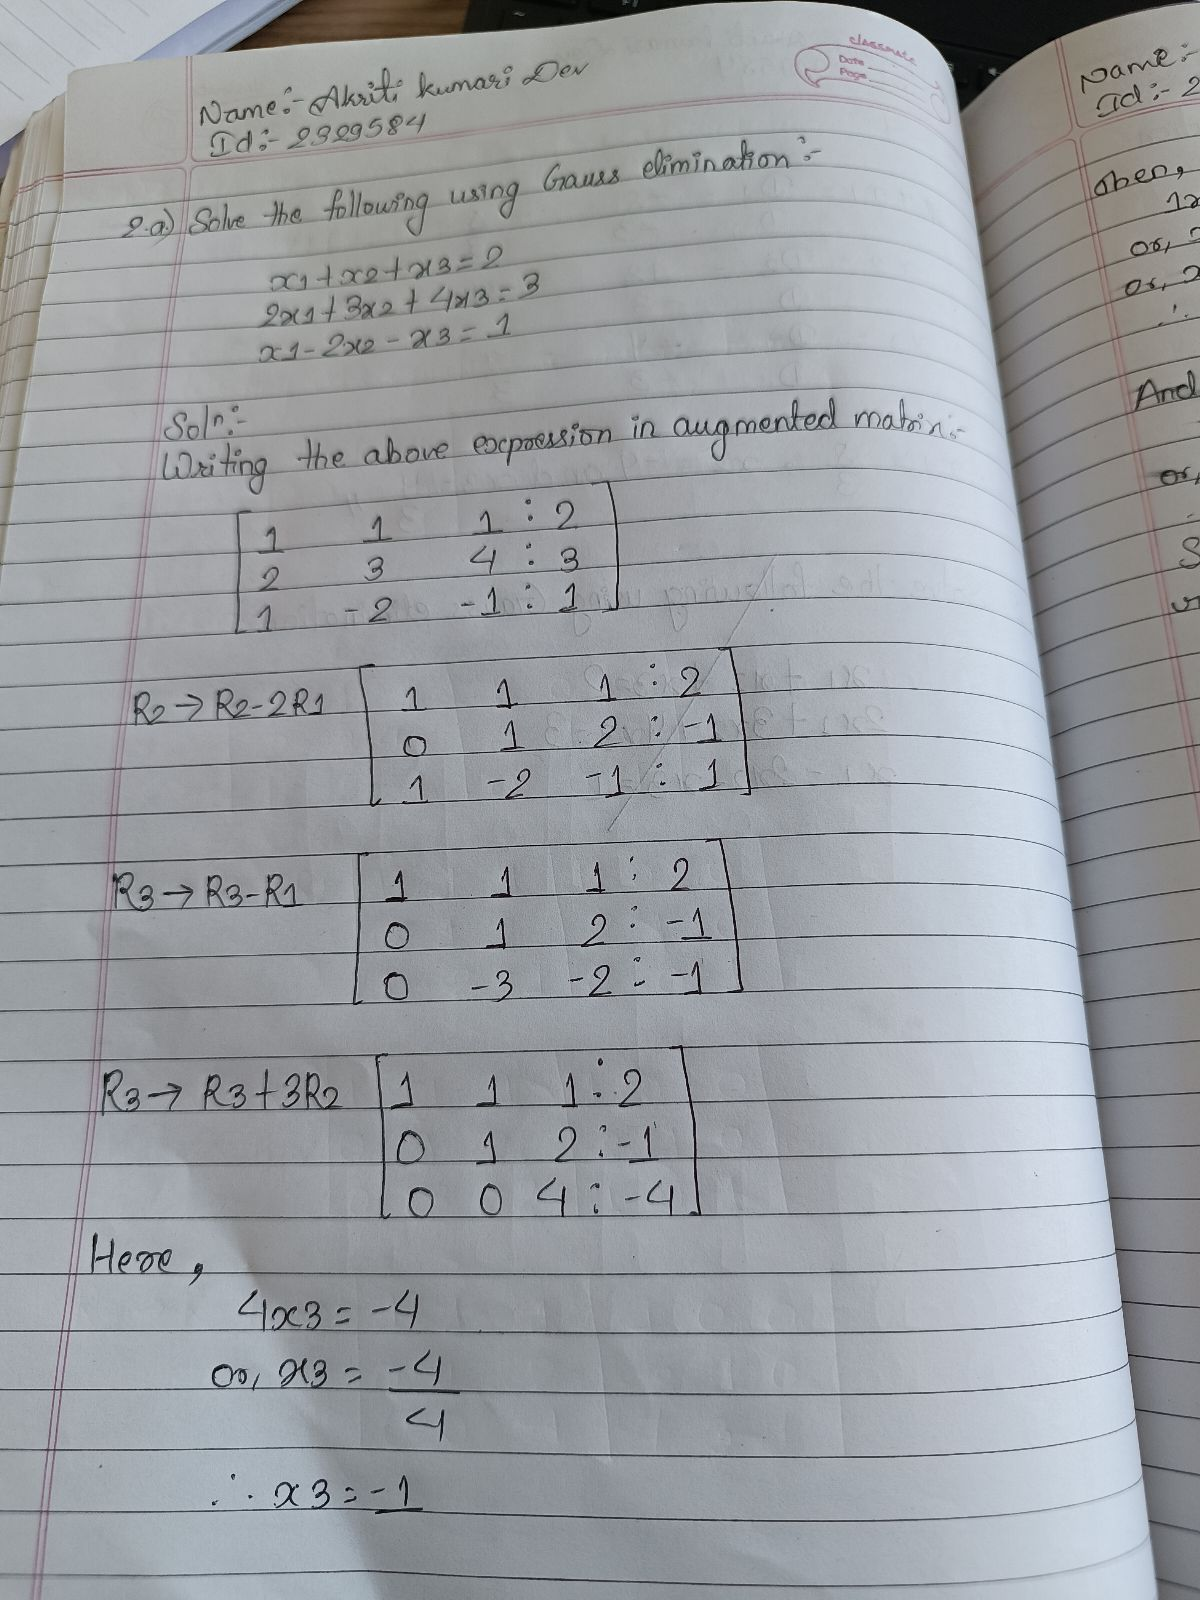 classmate
Date
Page
Name:- Akriti kumari Dev
Id:- 2329584
2.a) Solve the following using Gauss elimination:-
x1+x2+x3=2
2x1+3x2+4x3=3
x1-2x2-x3=1
Soln:-
Writing the above expression in augmented matrix:-
1 1 1 : 2
2 3 4 : 3
1 -2 -1 : 1
R2→R2-2R1
1 1 1 : 2
0 1 2 : -1
1 -2 -1 : 1
R3→R3-R1
1 1 1 : 2
0 1 2 : -1
0 -3 -2 : -1
R3→ R3+3R2
1 1 1 : 2
0 1 2 : -1
0 0 4 : -4
Here,
4x3=-4
or, x3 = -4
4
∴ x3=-1
Name:-
Id:- 2
or,
or,
∴
And
or,